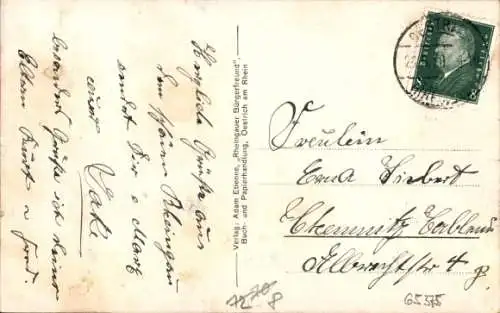 Herzliche Grüße aus
dem schönen Rheingau
sendet Dir u. Marg
eure
besonders Grüße ich deine
Eltern Kurt u
Verlag: Adam Etienne, „Rheingauer Bürgerfreund",
Buch- und Papierhandlung, Oestrich am Rhein
Fräulein
Erna Siebert
Chemnitz Gablenz
Albrechtstr 4
7270
8
65375